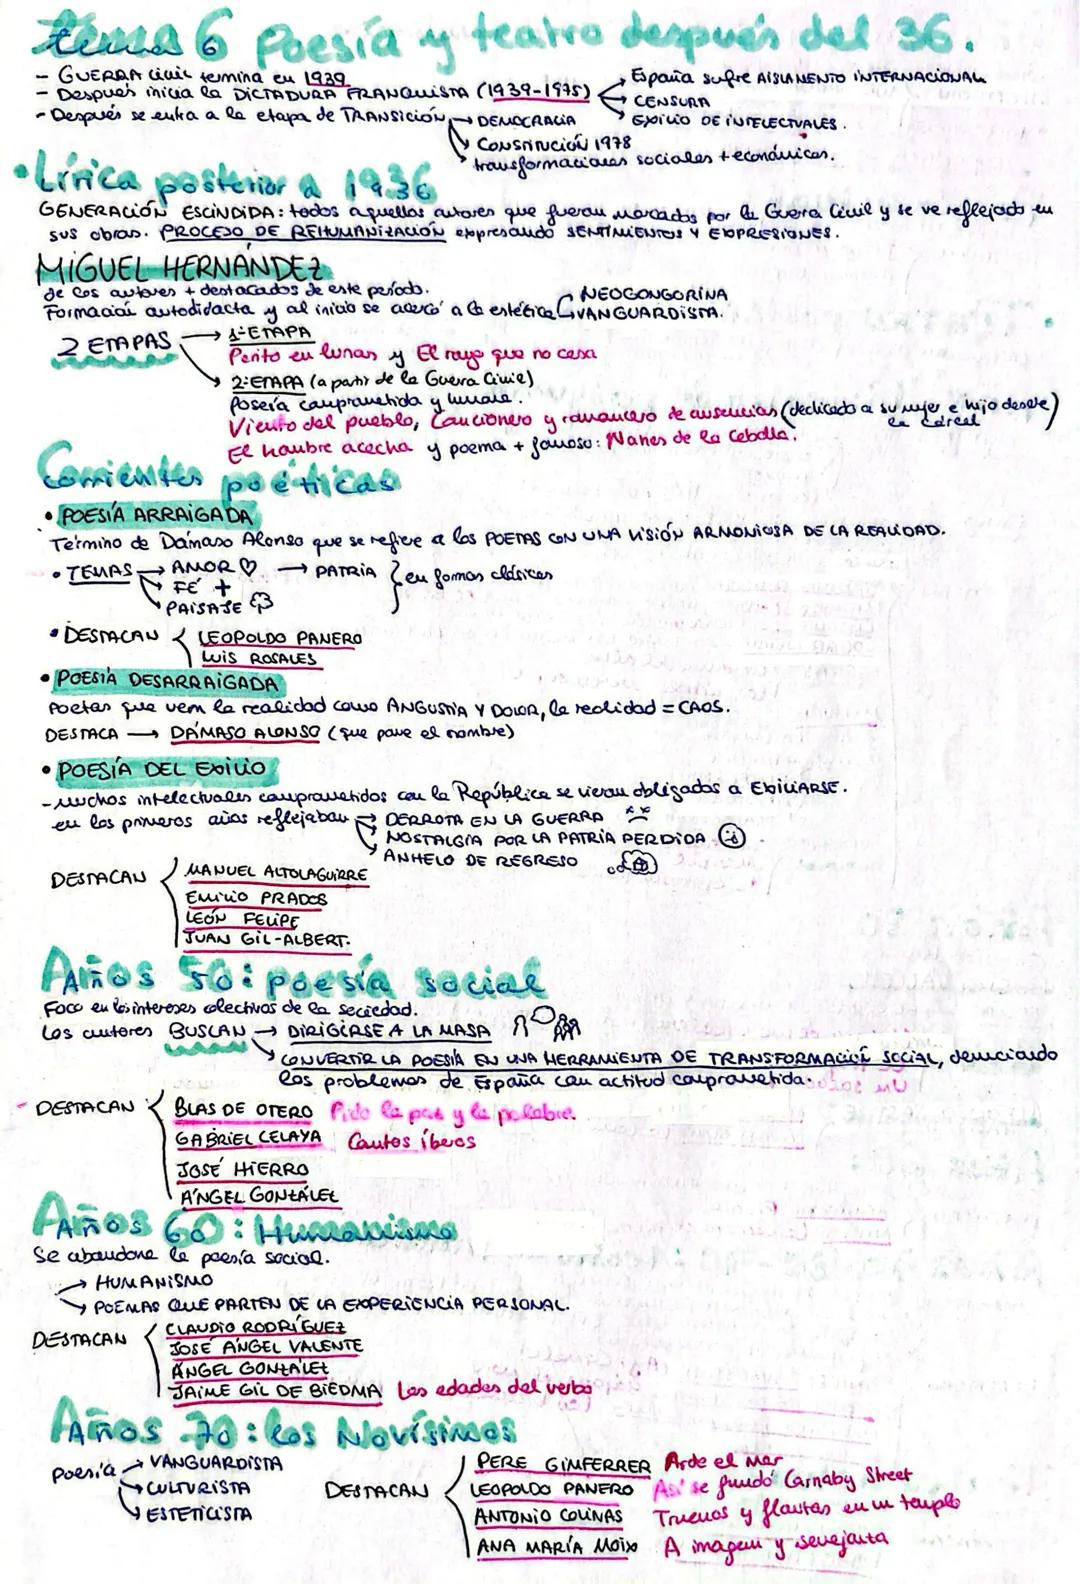 tema 6 Poesía y teatro después del 36.
- GUERRA civil termina en 1939
- Después inicia la DICTADURA FRANQUISTA (1939-1975) → España sufre AISLAMENTO INTERNACIONAL
→ CENSURA
→ EXILIO DE INTELECTUALES.
- Después se entra a la etapa de TRANSICIÓN → DEMOCRACIA
→ CONSTITUCIÓN 1978
→ transformaciones sociales + económicas.
• Lírica posterior a 1936
GENERACIÓN ESCINDIDA: todos aquellos autores que fueran marcados por la Guerra Civil y se ve reflejado en
sus obras. PROCESO DE REHUMANIZACIÓN expresando SENTIMIENTOS Y EXPRESIONES.
MIGUEL HERNÁNDEZ
de los autores + destacados de este período.
Formación autodidacta y al inicio se acercó a la estética NEOGONGORINA
VANGUARDISTA.
2 ETAPAS → 1ªETAPA
Perito en lunas y El rayo que no cesa
→ 2ªETAPA (a partir de la Guerra Civil)
Poseía comprometida y humana.
Viento del pueblo, Cancionero y romancero de ausencias (dedicado a su mujer e hijo desde
la cárcel)
El hombre acecha y poema + famoso: Nanas de la cebolla.
Corrientes poéticas
• POESÍA ARRAIGADA
Término de Dámaso Alonso que se refiere a los POETAS CON UNA VISIÓN ARMONIOSA DE LA REALIDAD.
• TEMAS → AMOR ♡ → PATRIA } en formas clásicas
→ FÉ +
→ PAISAJE
• DESTACAN { LEOPOLDO PANERO
LUIS ROSALES
• POESÍA DESARRAIGADA
Poetas que ven la realidad como ANGUSTIA Y DOLOR, la realidad = CAOS.
DESTACA → DÁMASO ALONSO (que pone el nombre)
• POESÍA DEL EXILIO
- muchos intelectuales comprometidos con la República se vieron obligados a EXILIARSE.
en los primeros años reflejaban → DERROTA EN LA GUERRA
→ NOSTALGIA POR LA PATRIA PERDIDA
→ ANHELO DE REGRESO
DESTACAN { MANUEL ALTOLAGUIRRE
EMILIO PRADOS
LEÓN FELIPE
JUAN GIL-ALBERT.
Años 50: poesía social
Foco en los intereses colectivos de la sociedad.
Los autores BUSCAN → DIRIGIRSE A LA MASA
→ CONVERTIR LA POESÍA EN UNA HERRAMIENTA DE TRANSFORMACIÓN SOCIAL, denunciando
los problemas de España con actitud comprometida.
- DESTACAN { BLAS DE OTERO Pido la paz y la palabra.
GABRIEL CELAYA Cantos íberos
JOSÉ HIERRO
ÁNGEL GONZÁLEZ
Años 60: Humanismo
Se abandona la poesía social.
→ HUMANISMO
→ POEMAS QUE PARTEN DE LA EXPERIENCIA PERSONAL.
DESTACAN { CLAUDIO RODRÍGUEZ
JOSÉ ÁNGEL VALENTE
ÁNGEL GONZÁLEZ
JAIME GIL DE BIEDMA Las edades del verbo
Años 70: los Novísimos
Poesía → VANGUARDISTA
→ CULTURISTA
→ ESTETICISTA
DESTACAN { PERE GIMFERRER Arde el mar
LEOPOLDO PANERO Así se fundó Carnaby Street
ANTONIO COLINAS Truenos y flautas en un templo
ANA MARÍA MOIX A imagen y semejanta